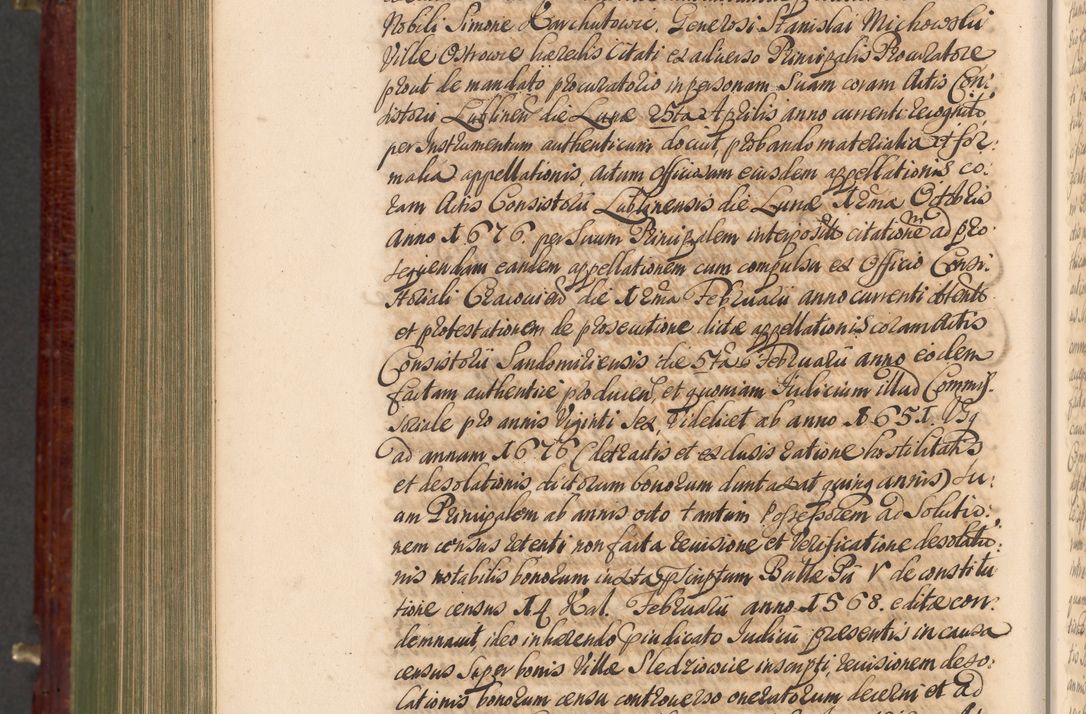 Nobili Simone Karchutowic. Generosi Stanislai Michowski
Villæ Ostrowie hæredis Citati ex adverso Principalis Procuratore
prout de mandato procuratorio in personam Suam coram Actis Con:
sistorii Lublinen die Lunæ 25ta Aprilis anno currenti recognito,
per Instrumentum authenticum docuit, probando materialia et for:
malia appellationis, Actum officiosum eiusdem appellationis co:
ram Actis Consistorii Lublinensis die Lunæ 12ma Octobris
Anno 1676. per Suum Principalem interpositæ citationem ad pro:
sequendam eandem appellationem cum compulsu ex Officio Consi:
storiali Cracovien die 12ma Februarii anno currenti obtento
et protestationem de prosecutione dictæ appellationis coram Actis
Consistorii Sandomiriensis die 5ta Februarii anno eodem
factam authenticè producen, et quoniam Iudicium illud Commis:
soriale pro annis Viginti Sex videlicet ab anno 1651. Usq
ad annum 1676 (detractis et exclusis ratione hostilitatis
et desolationis dictorum bonorum duntaxat quinq annis) Su:
um Principalem ab annis octo tantum Possessorem ad Solutio:
nem census retenti non facta revisione et verificatione desolatio:
nis notabilis bonorum iuxta præscriptum Bullæ Pii V de constitu
tione census 14 Kal. Februarii anno 1568. editæ con:
demnavit, ideo inhærendo præiudicato Iudicii præsentis in causa
census Super bonis Villæ Sledziowice inscripti, revisionem deso:
lationis bonorum censu controverso oneratorum decerni et ad